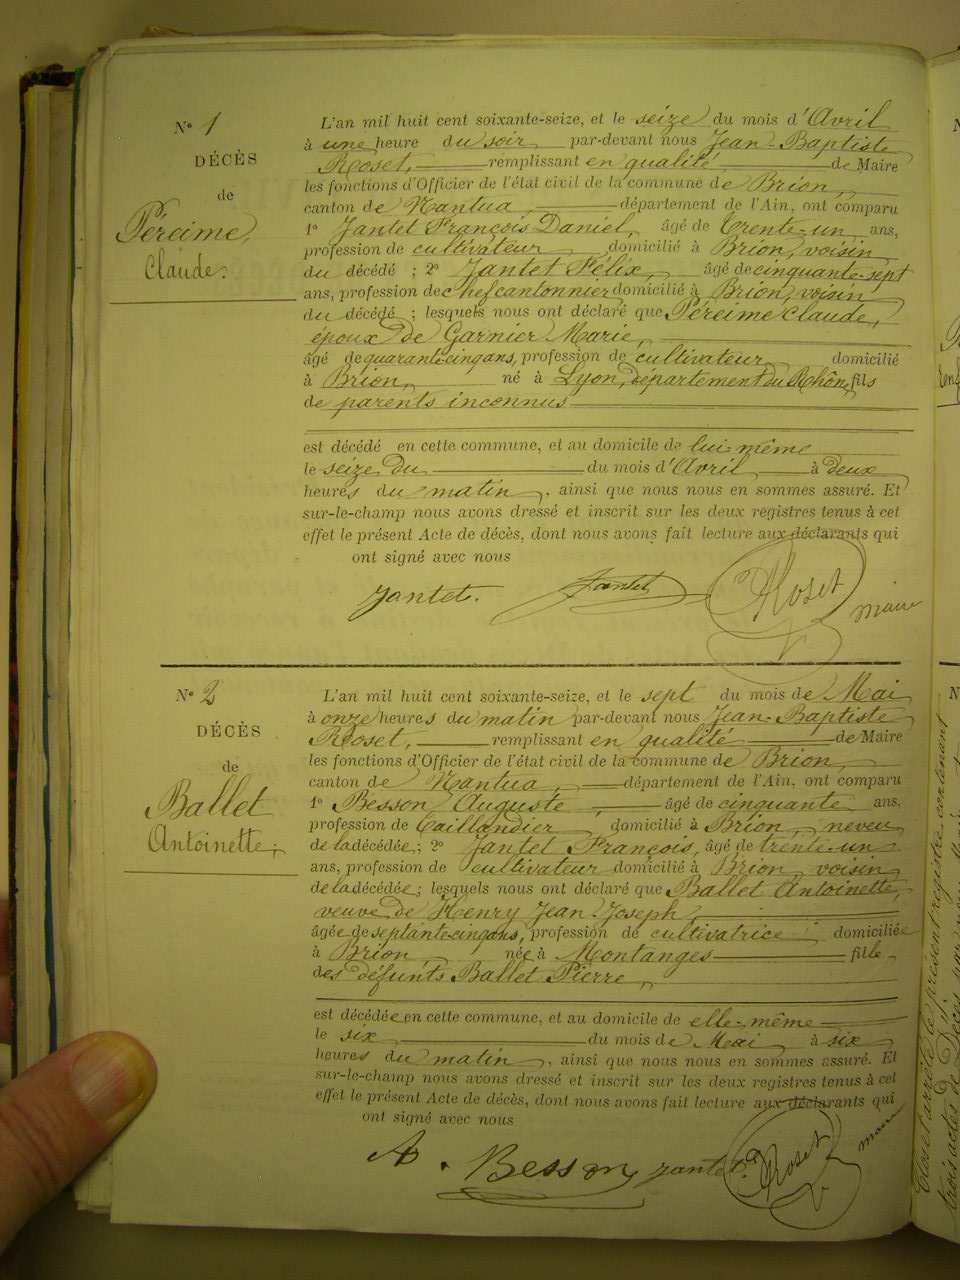 N° 1
DÉCÈS
de
Péreime,
Claude.
L'an mil huit cent soixante-seize, et le seize du mois d'Avril
à une heure du soir par-devant nous Jean-Baptiste
Roset, remplissant en qualité de Maire
les fonctions d'Officier de l'état civil de la commune de Brion,
canton de Nantua, département de l'Ain, ont comparu
1° Jantet François Daniel, âgé de trente-un ans,
profession de cultivateur domicilié à Brion, voisin
du décédé ; 2° Jantet Félix, âgé de cinquante-sept
ans, profession de chef cantonnier domicilié à Brion, voisin
du décédé ; lesquels nous ont déclaré que Péreime Claude,
époux de Garnier Marie,
âgé de quarante-cinq ans, profession de cultivateur domicilié
à Brion, né à Lyon, département du Rhône, fils
de parents inconnus
est décédé en cette commune, et au domicile de lui-même
le seize du du mois d'Avril à deux
heures du matin, ainsi que nous nous en sommes assuré. Et
sur-le-champ nous avons dressé et inscrit sur les deux registres tenus à cet
effet le présent Acte de décès, dont nous avons fait lecture aux déclarants qui
ont signé avec nous
Jantet. Jantet Roset maire
N° 2
DÉCÈS
de
Ballet
Antoinette,
L'an mil huit cent soixante-seize, et le sept du mois de Mai
à onze heures du matin par-devant nous Jean-Baptiste
Roset, remplissant en qualité de Maire
les fonctions d'Officier de l'état civil de la commune de Brion,
canton de Nantua, département de l'Ain, ont comparu
1° Besson Auguste, âgé de cinquante ans,
profession de Taillandier, domicilié à Brion, neveu
de la décédée ; 2° Jantet François, âgé de trente-un
ans, profession de cultivateur domicilié à Brion, voisin
de la décédée ; lesquels nous ont déclaré que Ballet Antoinette,
veuve de Henry Jean-Joseph,
âgée de septante-cinq ans, profession de cultivatrice domiciliée
à Brion née à Montanges fille
des défunts Ballet Pierre,
est décédée en cette commune, et au domicile de elle-même
le six du mois de Mai à six
heures du matin, ainsi que nous nous en sommes assuré. Et
sur-le-champ nous avons dressé et inscrit sur les deux registres tenus à cet
effet le présent Acte de décès, dont nous avons fait lecture aux déclarants qui
ont signé avec nous
A. Besson Jantet. Roset maire
Clos et arrêté le présent registre contenant
trois actes de Décès par nous Maire